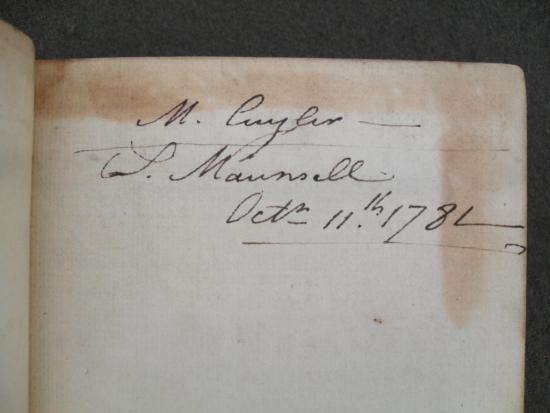 M. Cuyler —
S. Maunsell
Octr 11.th 1782